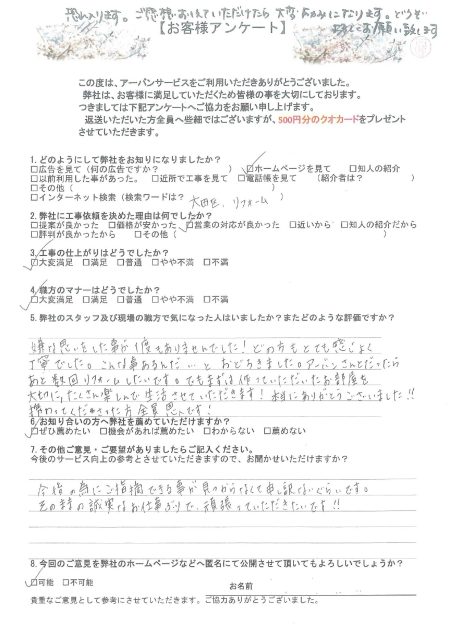 恐れ入ります。ご感想お聞かせていただけたら大変はげみになります。どうぞ
【お客様アンケート】
よろしくお願い致します
この度は、アーバンサービスをご利用いただきありがとうございました。
弊社は、お客様に満足していただくため皆様の事を大切にしております。
つきましては下記アンケートへご協力をお願い申し上げます。
返送いただいた方全員へ些細ではございますが、500円分のクオカードをプレゼント
させていただきます。
1. どのようにして弊社をお知りになりましたか?
□広告を見て (何の広告ですか? ) □ホームページを見て □知人の紹介
□以前利用した事があった。 □近所で工事を見て □電話帳を見て (紹介者は? )
□その他 ( )
□インターネット検索 (検索ワードは? 大田区、リフォーム )
2. 弊社に工事依頼を決めた理由は何でしたか?
□提案が良かった □価格が安かった □営業の対応が良かった □近いから □知人の紹介だから
□評判が良かったから □その他 ( )
3. 工事の仕上がりはどうでしたか?
□大変満足 □満足 □普通 □やや不満 □不満
4. 職方のマナーはどうでしたか?
□大変満足 □満足 □普通 □やや不満 □不満
5. 弊社のスタッフ及び現場の職方で気になった人はいましたか?またどのような評価ですか?
嫌な思いをした事が1度もありませんでした!どの方もとても感じよく
丁寧でした。こんな事あるんだ…とおどろきました。アーバンさんとだったら
あと数回リフォームしたいです。でもまずは作っていただいたお部屋を
大切に、たくさん楽しんで生活させていただきます!本当にありがとうございました!!
携わってくださった方全員恩人です!
6. お知り合いの方へ弊社を薦めていただけますか?
□ぜひ薦めたい □機会があれば薦めたい □わからない □薦めない
7. その他ご意見・ご要望がありましたらご記入ください。
今後のサービス向上の参考とさせていただきますので、お聞かせいただけますか?
今後の為にご指摘できる事が見つからなくて申し訳ないぐらいです。
そのままの誠実なお仕事ぶりで、頑張っていただきたいです!!
8. 今回のご意見を弊社のホームページなどへ匿名にて公開させて頂いてもよろしいでしょうか?
□可能 □不可能
お名前
貴重なご意見として参考にさせていただきます。ご協力ありがとうございました。